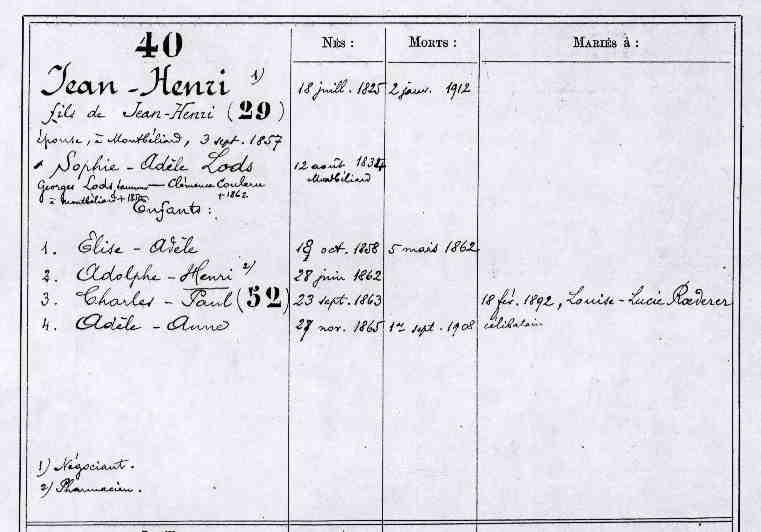 40
NÉS :
MORTS :
MARIÉS À :
Jean-Henri 1)
18 juill. 1825
2 janv. 1912
fils de Jean-Henri (29)
épouse, à Montbéliard, 3 sept. 1857
Sophie-Adèle Lods
12 août 1834
Montbéliard
Georges Lods, - Clémence
à Montbéliard + 1862
Enfants :
1. Elise-Adèle
oct. 1858
5 mars 1862
2. Adolphe-Henri 2)
28 juin 1862
3. Charles-Paul (52)
23 sept. 1863
18 fév. 1892, Louise-Lucie Rœderer
4. Adèle-Anna
27 nov. 1865
1er sept. 1908
célibataire
1) Négociant.
2) Pharmacien.